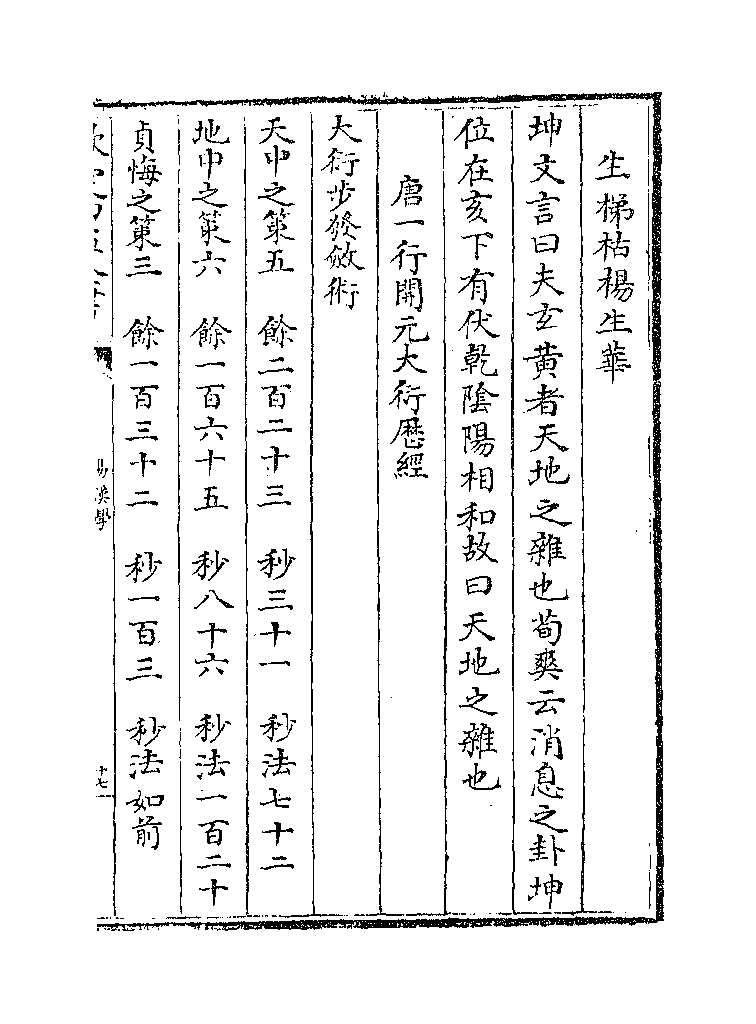 生梯枯楊生華
坤文言曰夫玄黄者天地之雜也荀爽云消息之卦坤
位在亥下有伏乾陰陽相和故曰天地之雜也
唐一行開元大衍厯經
大衍步發斂術
天中之策五　餘二百二十三　秒三十一　秒法七十二
地中之策六　餘一百六十五　秒八十六　秒法一百二十
貞悔之策三　餘一百三十二　秒一百三　秒法如前
易漢學
十七